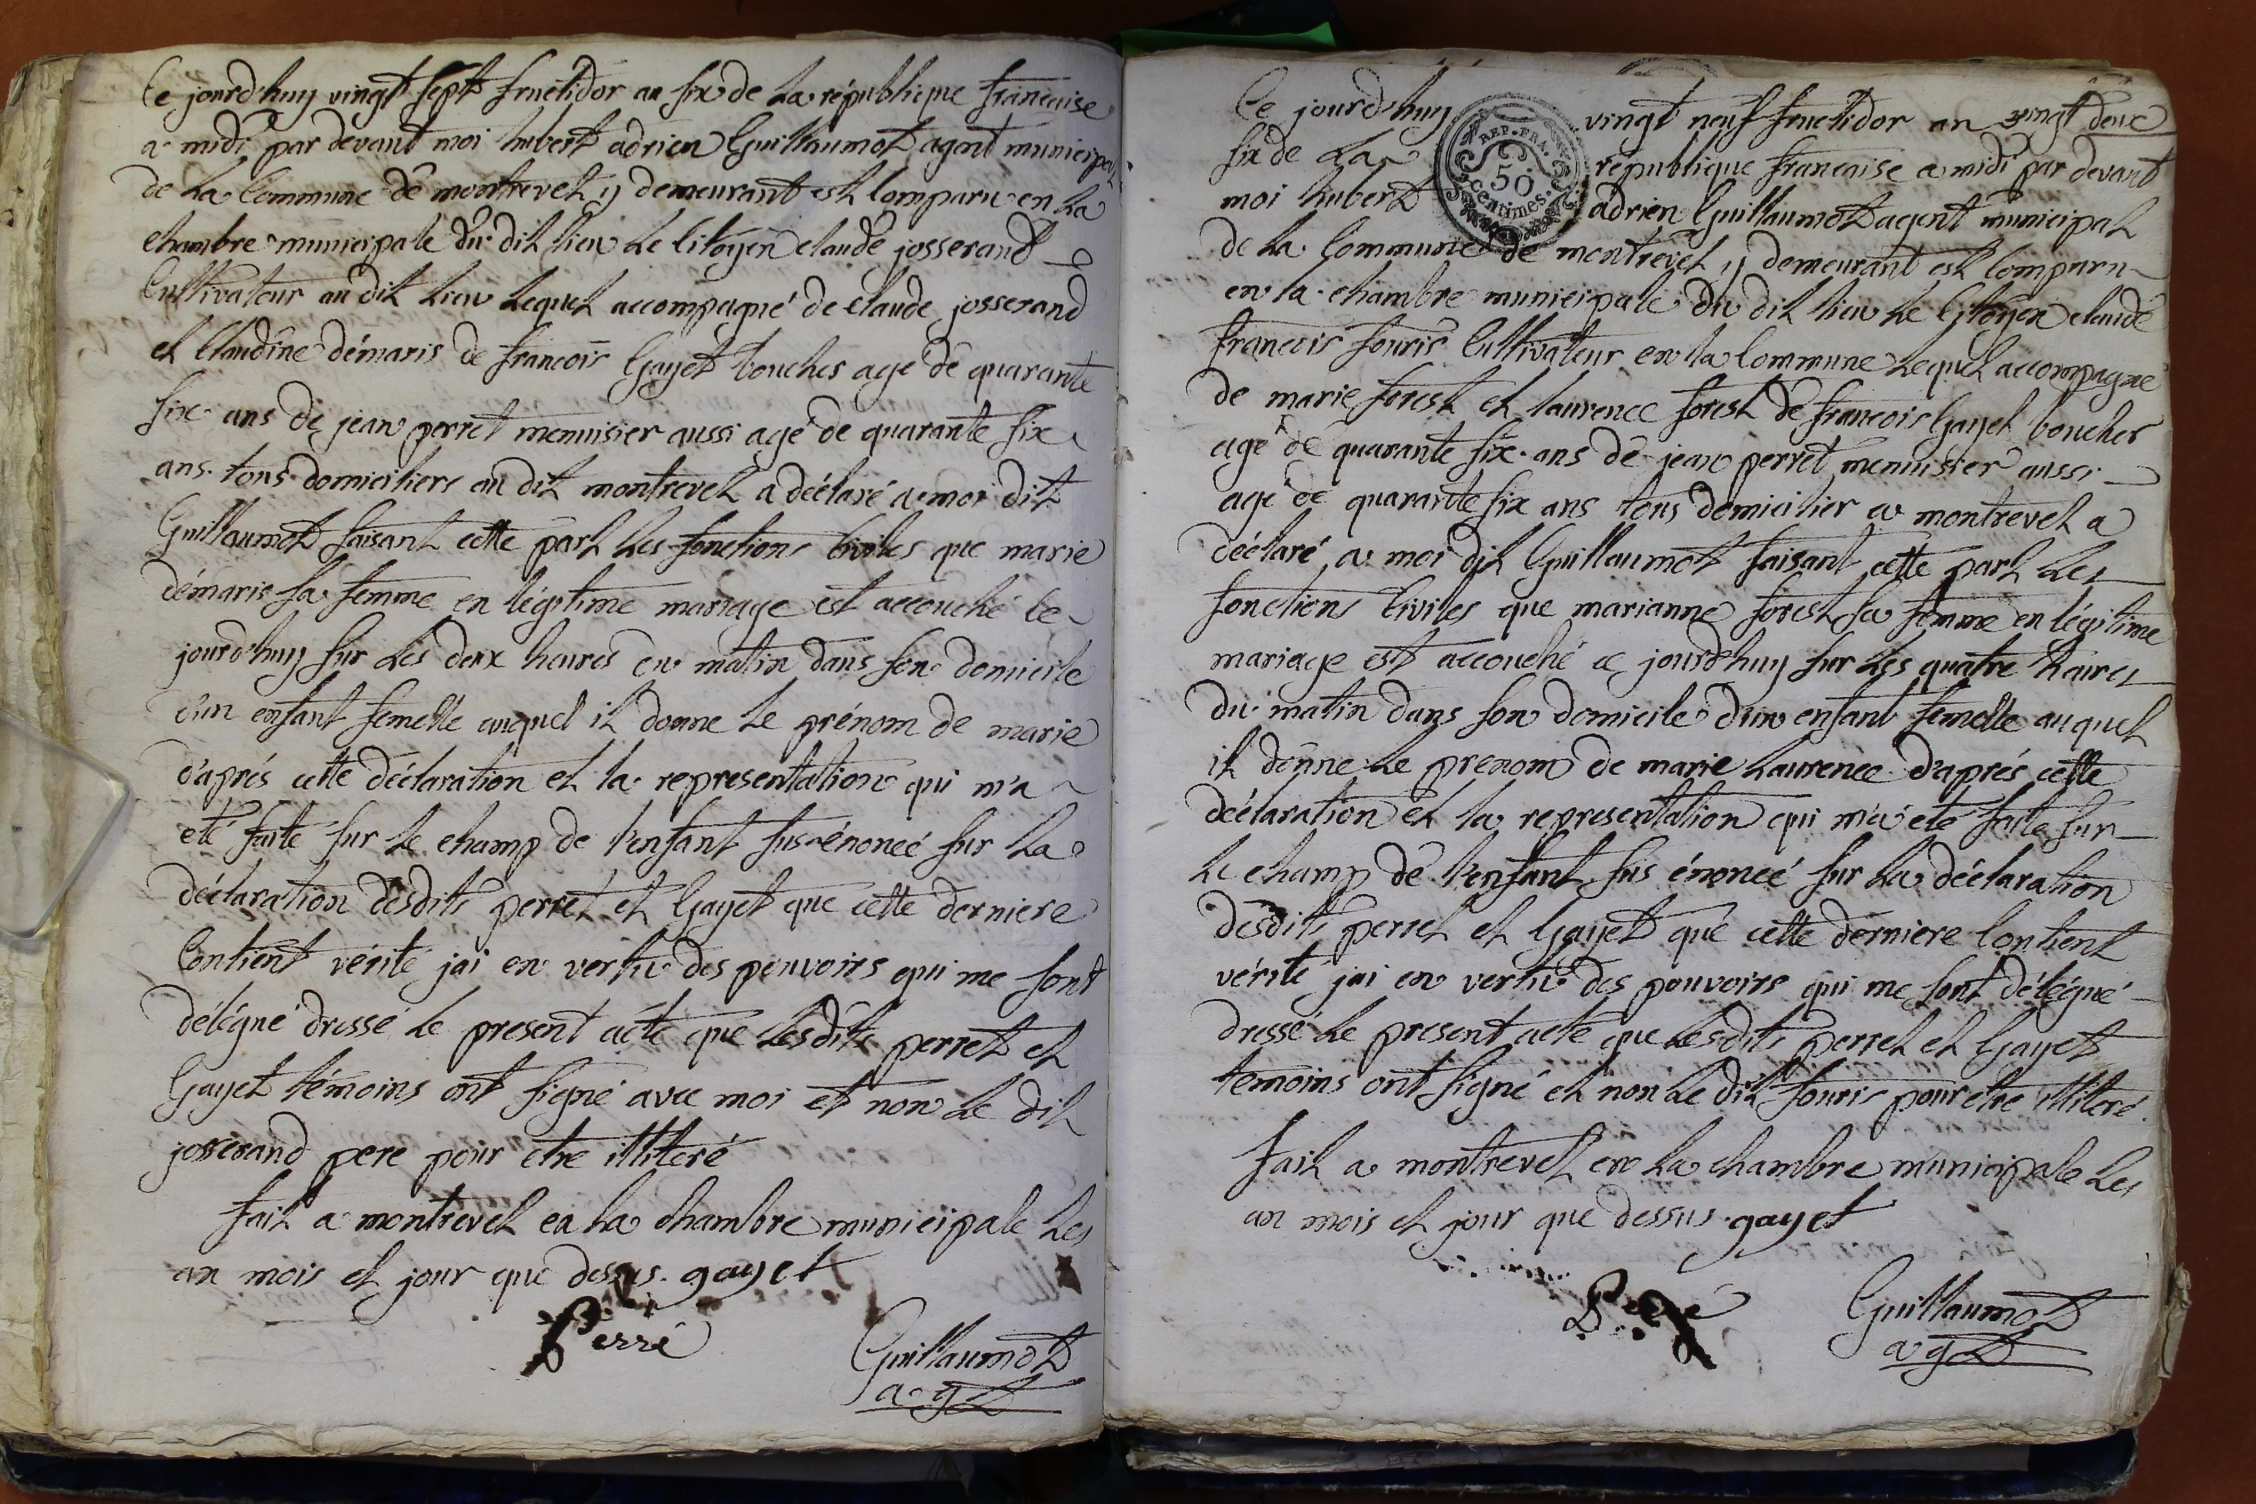 Ce jourd'huy vingt sept fructidor an six de la république française
a midi par devant moi hubert adrien Guillaumot agent municipal
de la Commune de montrevel y demeurant est Comparu en la
chambre municipale du dit lieu Le Citoyen claude josserand
Cultivateur au dit Lieu Lequel accompagné de claude josserand
et Claudine démaris de francois Gayet boucher agé de quarante
six ans de jean perret menuisier aussi agé de quarante six
ans tous domiciliers au dit montrevel a déclaré a moi dit
Guillaumot faisant cette part Les fonctions Civiles que marie
démaris sa femme en légitime mariage est accouché ce
jourd'huy sur Les deux heures du matin dans son domicile
d'un enfant femelle auquel il donne Le prénom de marie
d'aprés cette déclaration et la representation qui m'a
été faite sur Le champ de l'enfant sus énoncé sur La
déclaration desdits perret et Gayet que cette derniere
Contient vérité jai en vertu des pouvoirs qui me sont
délégué dressé Le present acte que Lesdits perret et
Gayet témoins ont signé avec moi et non Le dit
josserand pere pour etre illiteré
fait a montrevel en La chambre municipale Les
an mois et jour que dessus. gayet
Perré
Guillaumot
agt
Ce jourd'huy vingt neuf fructidor an
vingt deux
REP. FRA.
50
centimes.
six de La république française a midi par devant
moi hubert adrien Guillaumot agent municipal
de La Commune de montrevel y demeurant est Comparu
en la chambre municipale du dit lieu Le Citoyen claude
francois souris Cultivateur en la Commune Lequel accompagné
de marie forest et laurence forest de francois Gayet boucher
agé de quarante six ans de jean perret menuisier aussi
agé de quarante six ans tous domicilier a montrevel a
déclaré a moi dit Guillaumot faisant cette part Les
fonctions Civiles que marianne forest sa femme en légitime
mariage est accouché ce jourd'huy sur Les quatre heures
du matin dans son domicile d'un enfant femelle auquel
il donne Le prenom de marie Laurence d'aprés cette
déclaration et la representation qui m'a été faite sur
Le champ de l'enfant sus énoncé sur La déclaration
desdits perret et Gayet que cette derniere Contient
vérité jai en vertu des pouvoirs qui me sont délégué
dressé Le present acte que Lesdits perret et Gayet
temoins ont signé et non Le dit souris pour etre illiteré.
fait a montrevel en La chambre municipale Les
an mois et jour que dessus. gayet
Perré
Guillaumot
agt